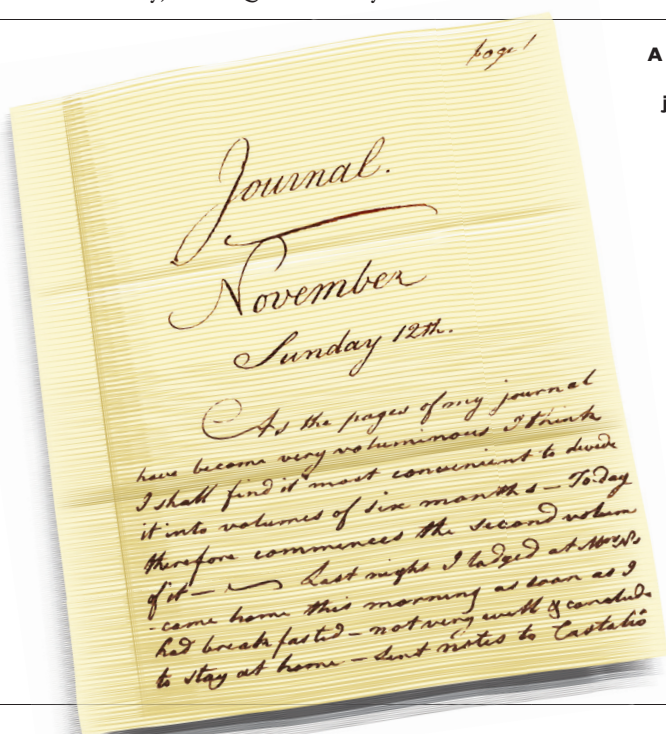 A
j
page 1
Journal.
November
Sunday 12th.
As the pages of my journal
have become very voluminous I think
I shall find it most convenient to devide
it into volumes of six months — To-day
therefore commences the second volum
of it — Last night I lodged at
- came home this morning as soon as I
had breakfasted – not very well & conclude
to stay at home – Sent notes to Castalio